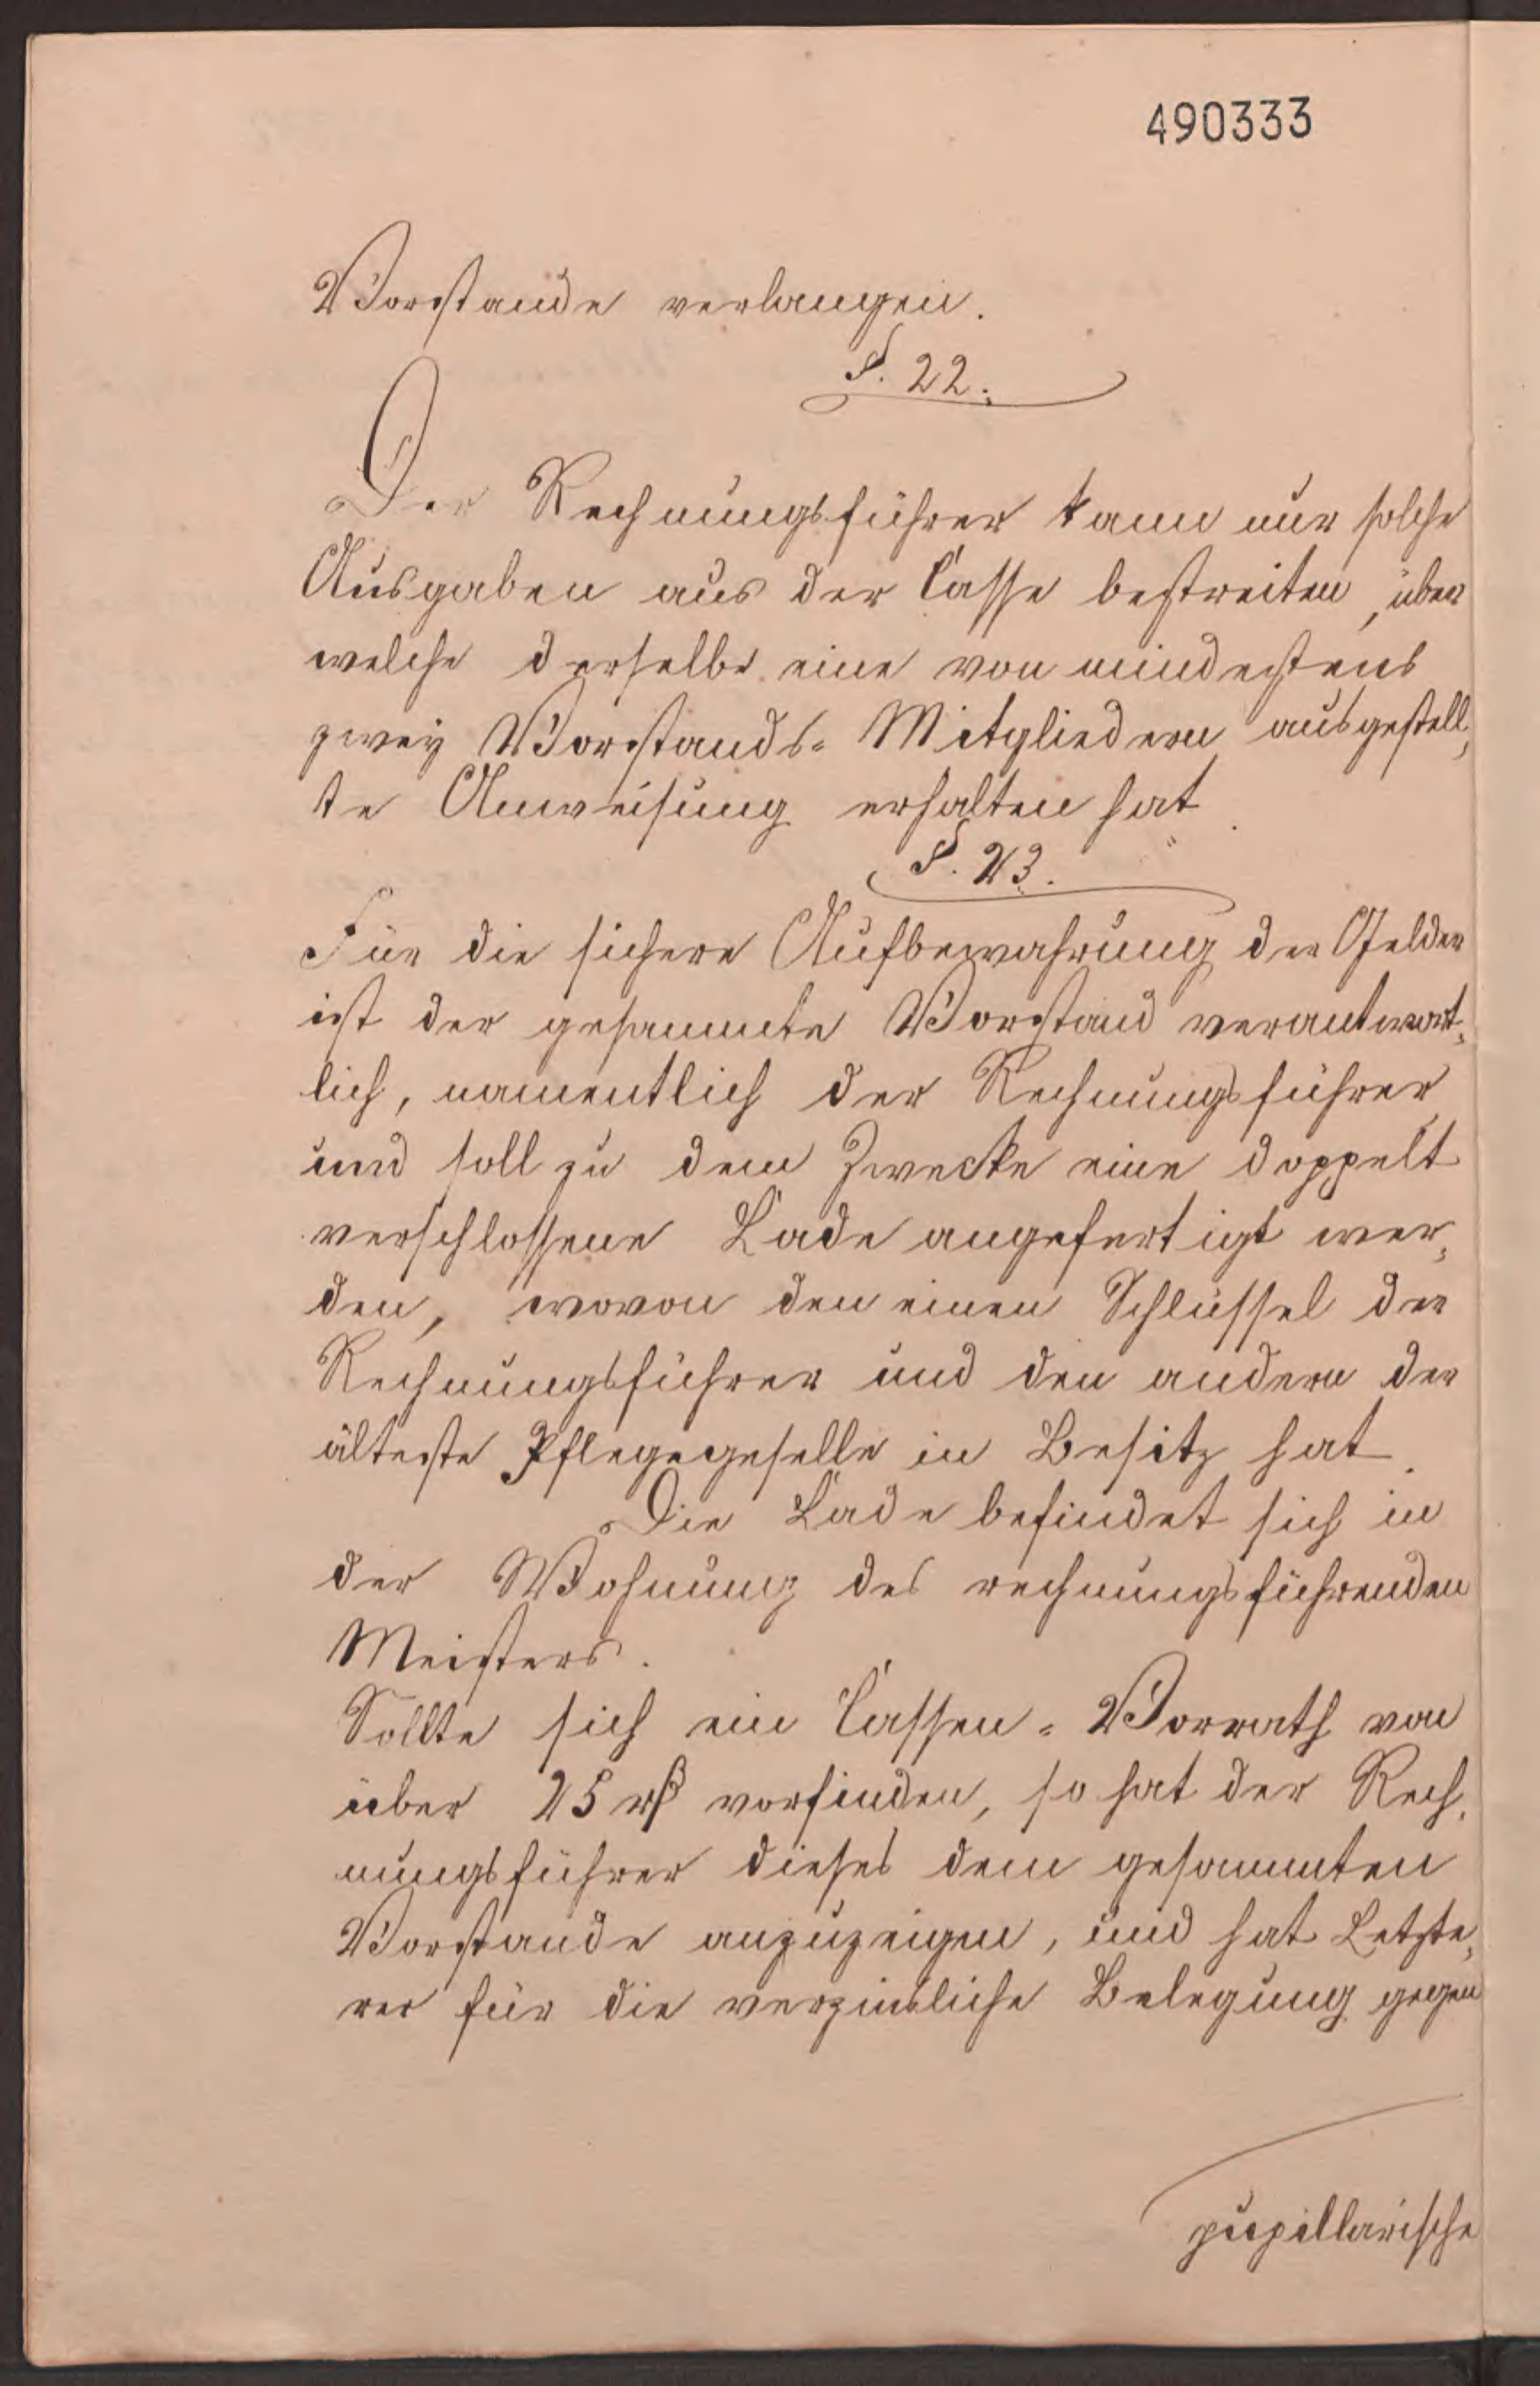 490333
Vorstande verlangen.
§. 22.
Der Rechnungsführer kann nur solche
Ausgaben aus der Casse bestreiten, über
welche derselbe eine von mindestens
zwey Vorstands- Mitgliedern ausgestell-
te Anweisung erhalten hat.
§. 23.
Für die sichere Aufbewahrung der Gelder
ist der gesammte Vorstand verantwort-
lich, namentlich der Rechnungsführer
und soll zu dem Zwecke eine doppelt
verschlossene Lade angefertigt wer-
den, wovon den einen Schlüssel der
Rechnungsführer und den andern der
älteste Pflegegeselle in Besitz hat.
Die Lade befindet sich in
der Wohnung des rechnungsführenden
Meisters.
Sollte sich ein Cassen- Vorrath von
über 25 rβ vorfinden, so hat der Rech-
nungsführer dieses dem gesammten
Vorstande anzuzeigen, und hat Letzte-
rer für die verzinsliche Belegung gegen
pupillarische